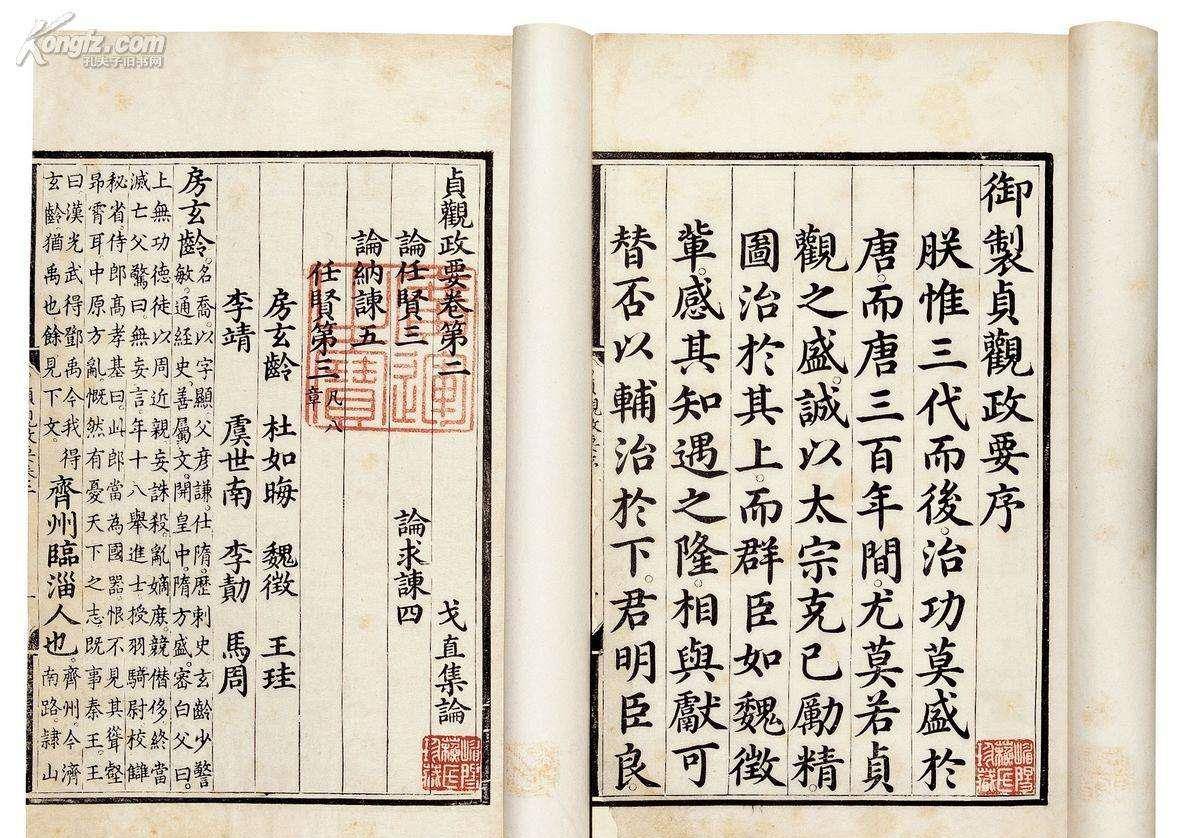 Kongfz.com
孔夫子旧书网
御製貞觀政要序
朕惟三代而後。治功莫盛於
唐。而唐三百年間。尤莫若貞
觀之盛。誠以太宗克己勵精
圖治於其上。而群臣如魏徵
輩。感其知遇之隆。相與獻可
替否以輔治於下。君明臣良。
貞觀政要卷第二 戈直集論
論任賢三 論求諫四
論納諫五
任賢第三 凡八章
房玄齡 杜如晦 魏徵 王珪
李靖 虞世南 李勣 馬周
房玄齡。名喬。以字顯。父彥謙。仕隋。歷刺史。玄齡少警
敏。通經史。善屬文。開皇中。隋方盛。密白父曰。
上無功德。徒以周近親。妄誅殺。亂嫡庶。競僭侈。終當
滅亡。父驚曰。無妄言。年十八舉進士。授羽騎尉。校讎
秘省。侍郎高孝基曰。此郎當為國器。恨不見其聳壑
昂霄耳。中原方亂。慨然有憂天下之志。既事秦王。王
曰。漢光武得鄧禹。今我得
玄齡。猶禹也。餘見下文。齊州臨淄人也。齊州。今濟
南路。隸山
廣運之寶